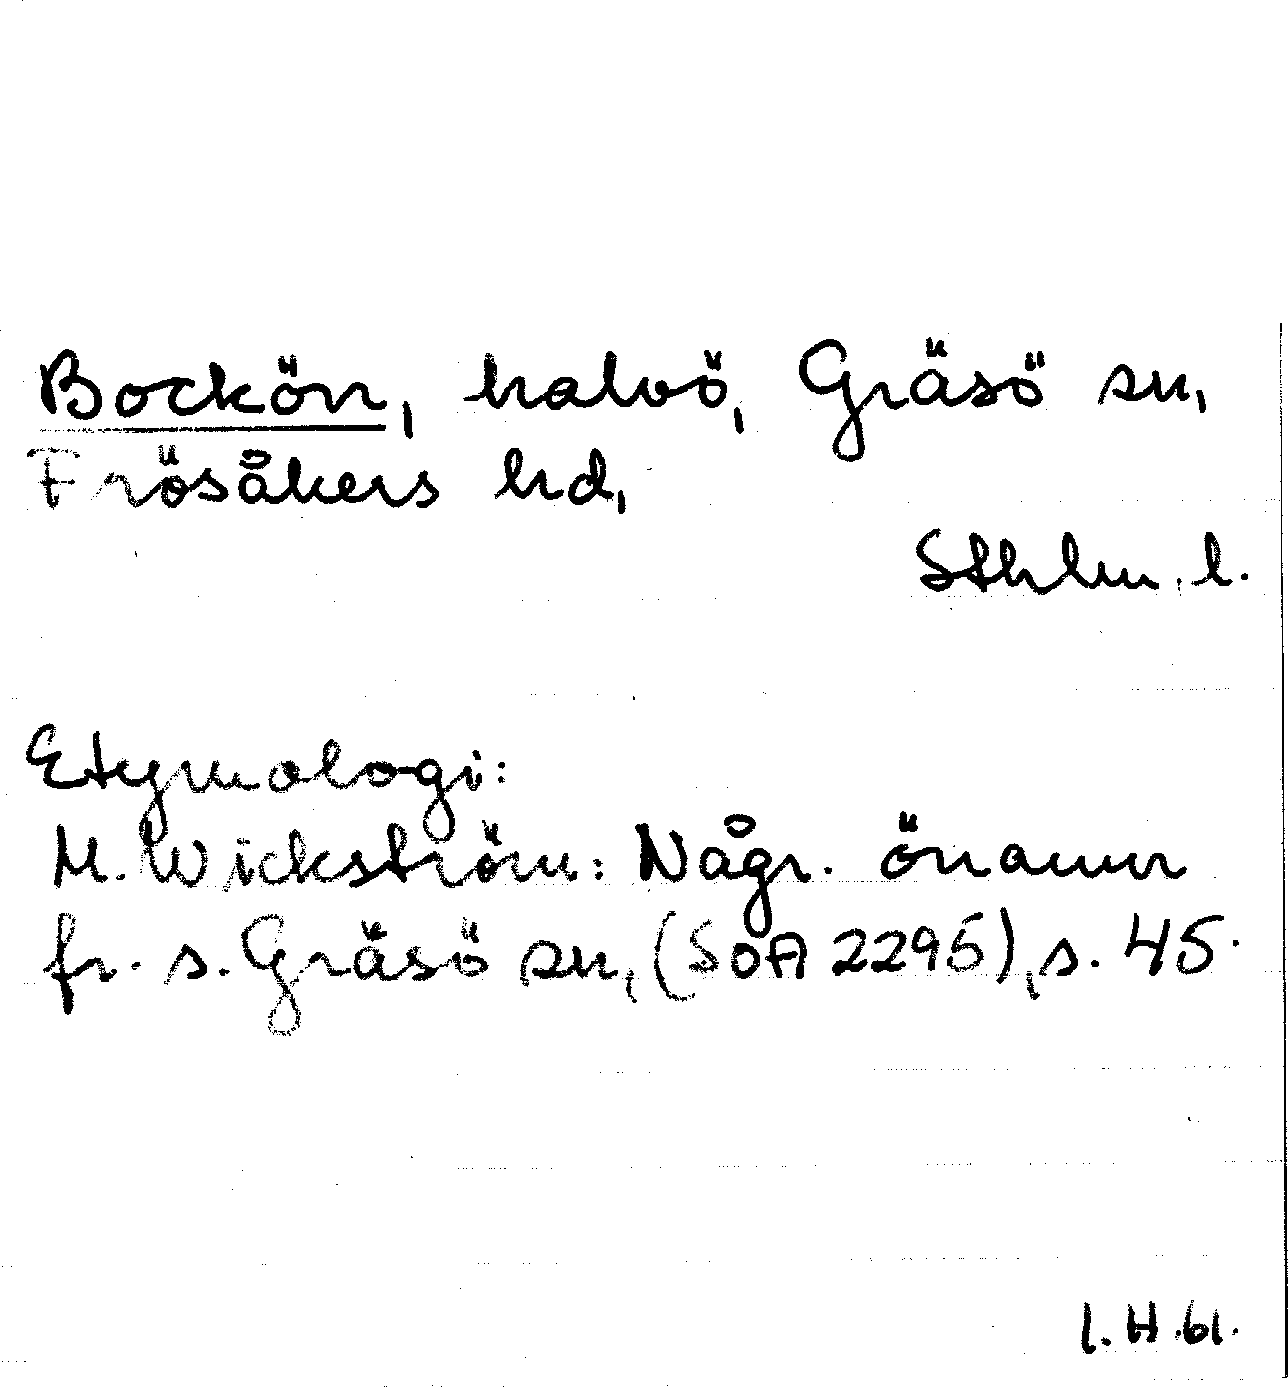 Bockön, halvö, Gräsö sn,
Frösåkers hd,
Sthlm. l.
Etymologi:
M. Wickström: Någr. önamn
fr. s. Gräsö sn, (SOA 2295), s. 45.
I. H. 61.